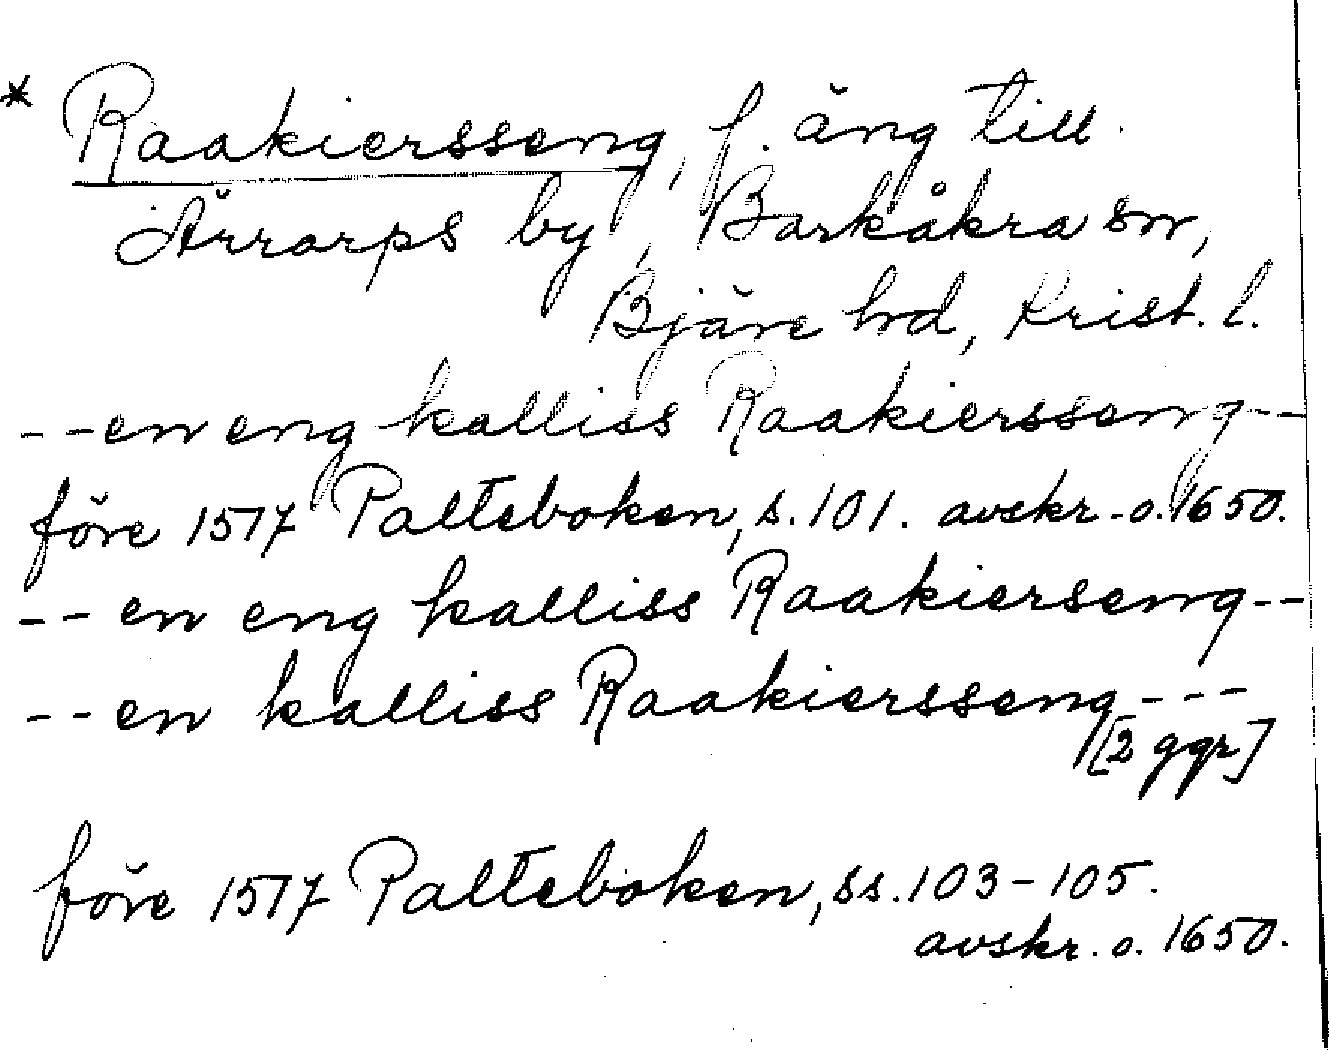 * Raakiersseng, f. äng till
Ärrarps by, Barkåkra sn,
Bjäre hd, Krist. l.
--en eng kalliss Raakiersseng--
före 1517 Palteboken, s. 101. avskr. o. 1650.
--en eng kalliss Raakierseng--
--en kalliss Raakiersseng---
[2 ggr]
före 1517 Palteboken, ss. 103-105.
avskr. o. 1650.